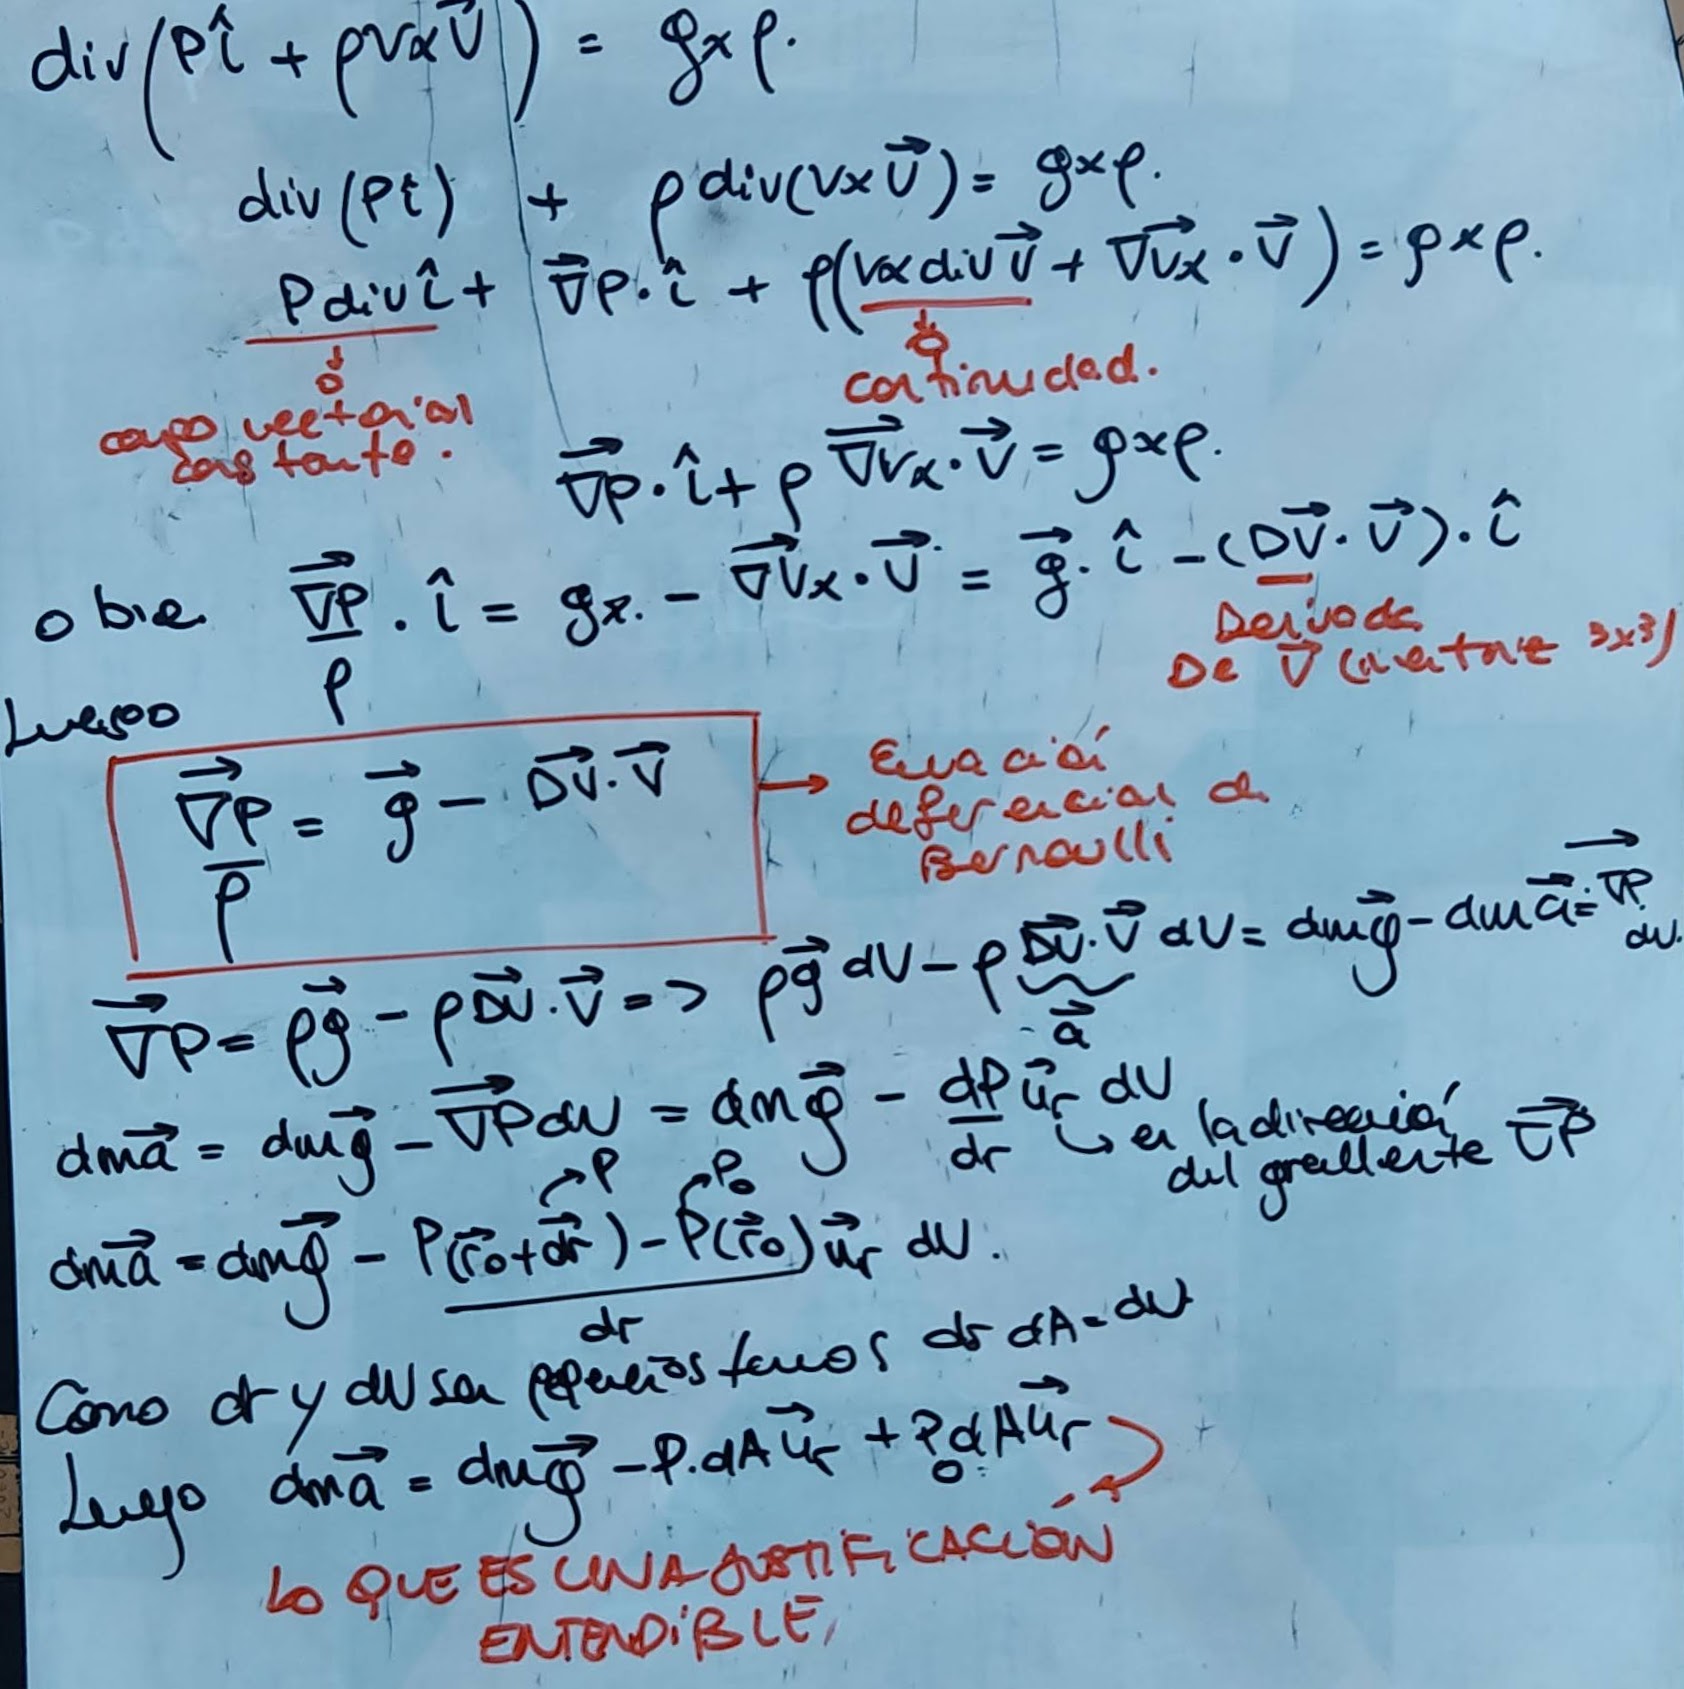 div(Pî + ρVx V⃗) = gx ρ.
div(Pî) + ρ div(Vx V⃗) = gx ρ.
P div î + ∇⃗P · î + ρ(Vx div V⃗ + ∇⃗Vx · V⃗) = gx ρ.
↓ 0 ↓ 0
campo vectorial constante. continuidad.
∇⃗P · î + ρ ∇⃗Vx · V⃗ = gx ρ.
o bie. ∇⃗P/ρ · î = gx. − ∇⃗Vx · V⃗ = g⃗ · î − (DV⃗ · V⃗) · î
Derivada
De V⃗ (matriz 3x3)
Luego
∇⃗P/ρ = g⃗ − DV⃗ · V⃗ → Ecuación
diferencial de
Bernoulli
∇⃗P = ρg⃗ − ρDV⃗ · V⃗ => ρg⃗ dV − ρ DV⃗ · V⃗ dV = dm g⃗ − dm a⃗ = ∇⃗P dV.
a⃗
dm a⃗ = dm g⃗ − ∇⃗P dV = dm g⃗ − dP/dr u⃗r dV
↳ en la dirección
del gradiente ∇⃗P
→ P → P₀
dm a⃗ = dm g⃗ − P(r⃗₀ + dr⃗) − P(r⃗₀) / dr u⃗r dV.
Como dr y dV son pequeños tenemos dr dA = dV
Luego dm a⃗ = dm g⃗ − P · dA u⃗r + P₀ dA u⃗r
LO QUE ES UNA JUSTIFICACIÓN
ENTENDIBLE,